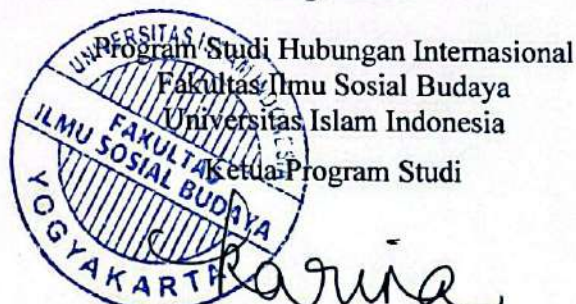 Program Studi Hubungan Internasional
Fakultas Ilmu Sosial Budaya
Universitas Islam Indonesia
Ketua Program Studi
UNIVERSITAS ISLAM INDONESIA
FAKULTAS
ILMU SOSIAL BUDAYA
YOGYAKARTA
Karina